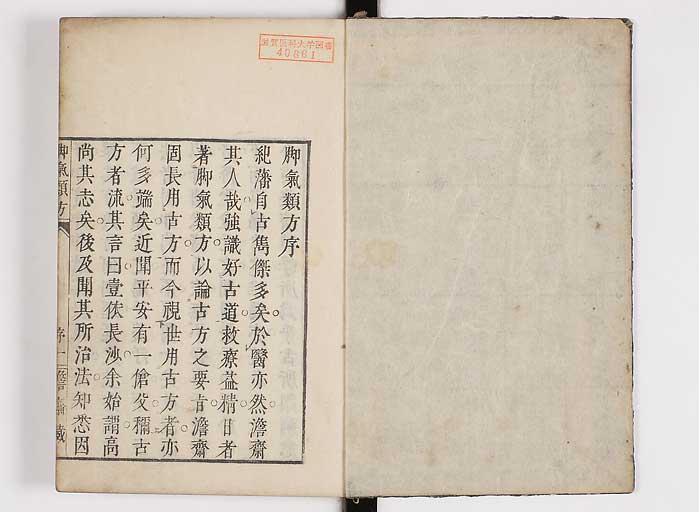 滋賀医科大学図書
40861
脚氣類方序
紀藩自古雋傑多矣於醫亦然澹齋
其人哉強識好古道救療益精日者
著脚氣類方以論古方之要旨澹齋
固長用古方而今視世用古方者亦
何多端矣近聞平安有一傖父稱古
方者流其言曰壹依長沙余始謂高
尚其志矣後及聞其所治法知悉因
脚氣類方
序 一
藏